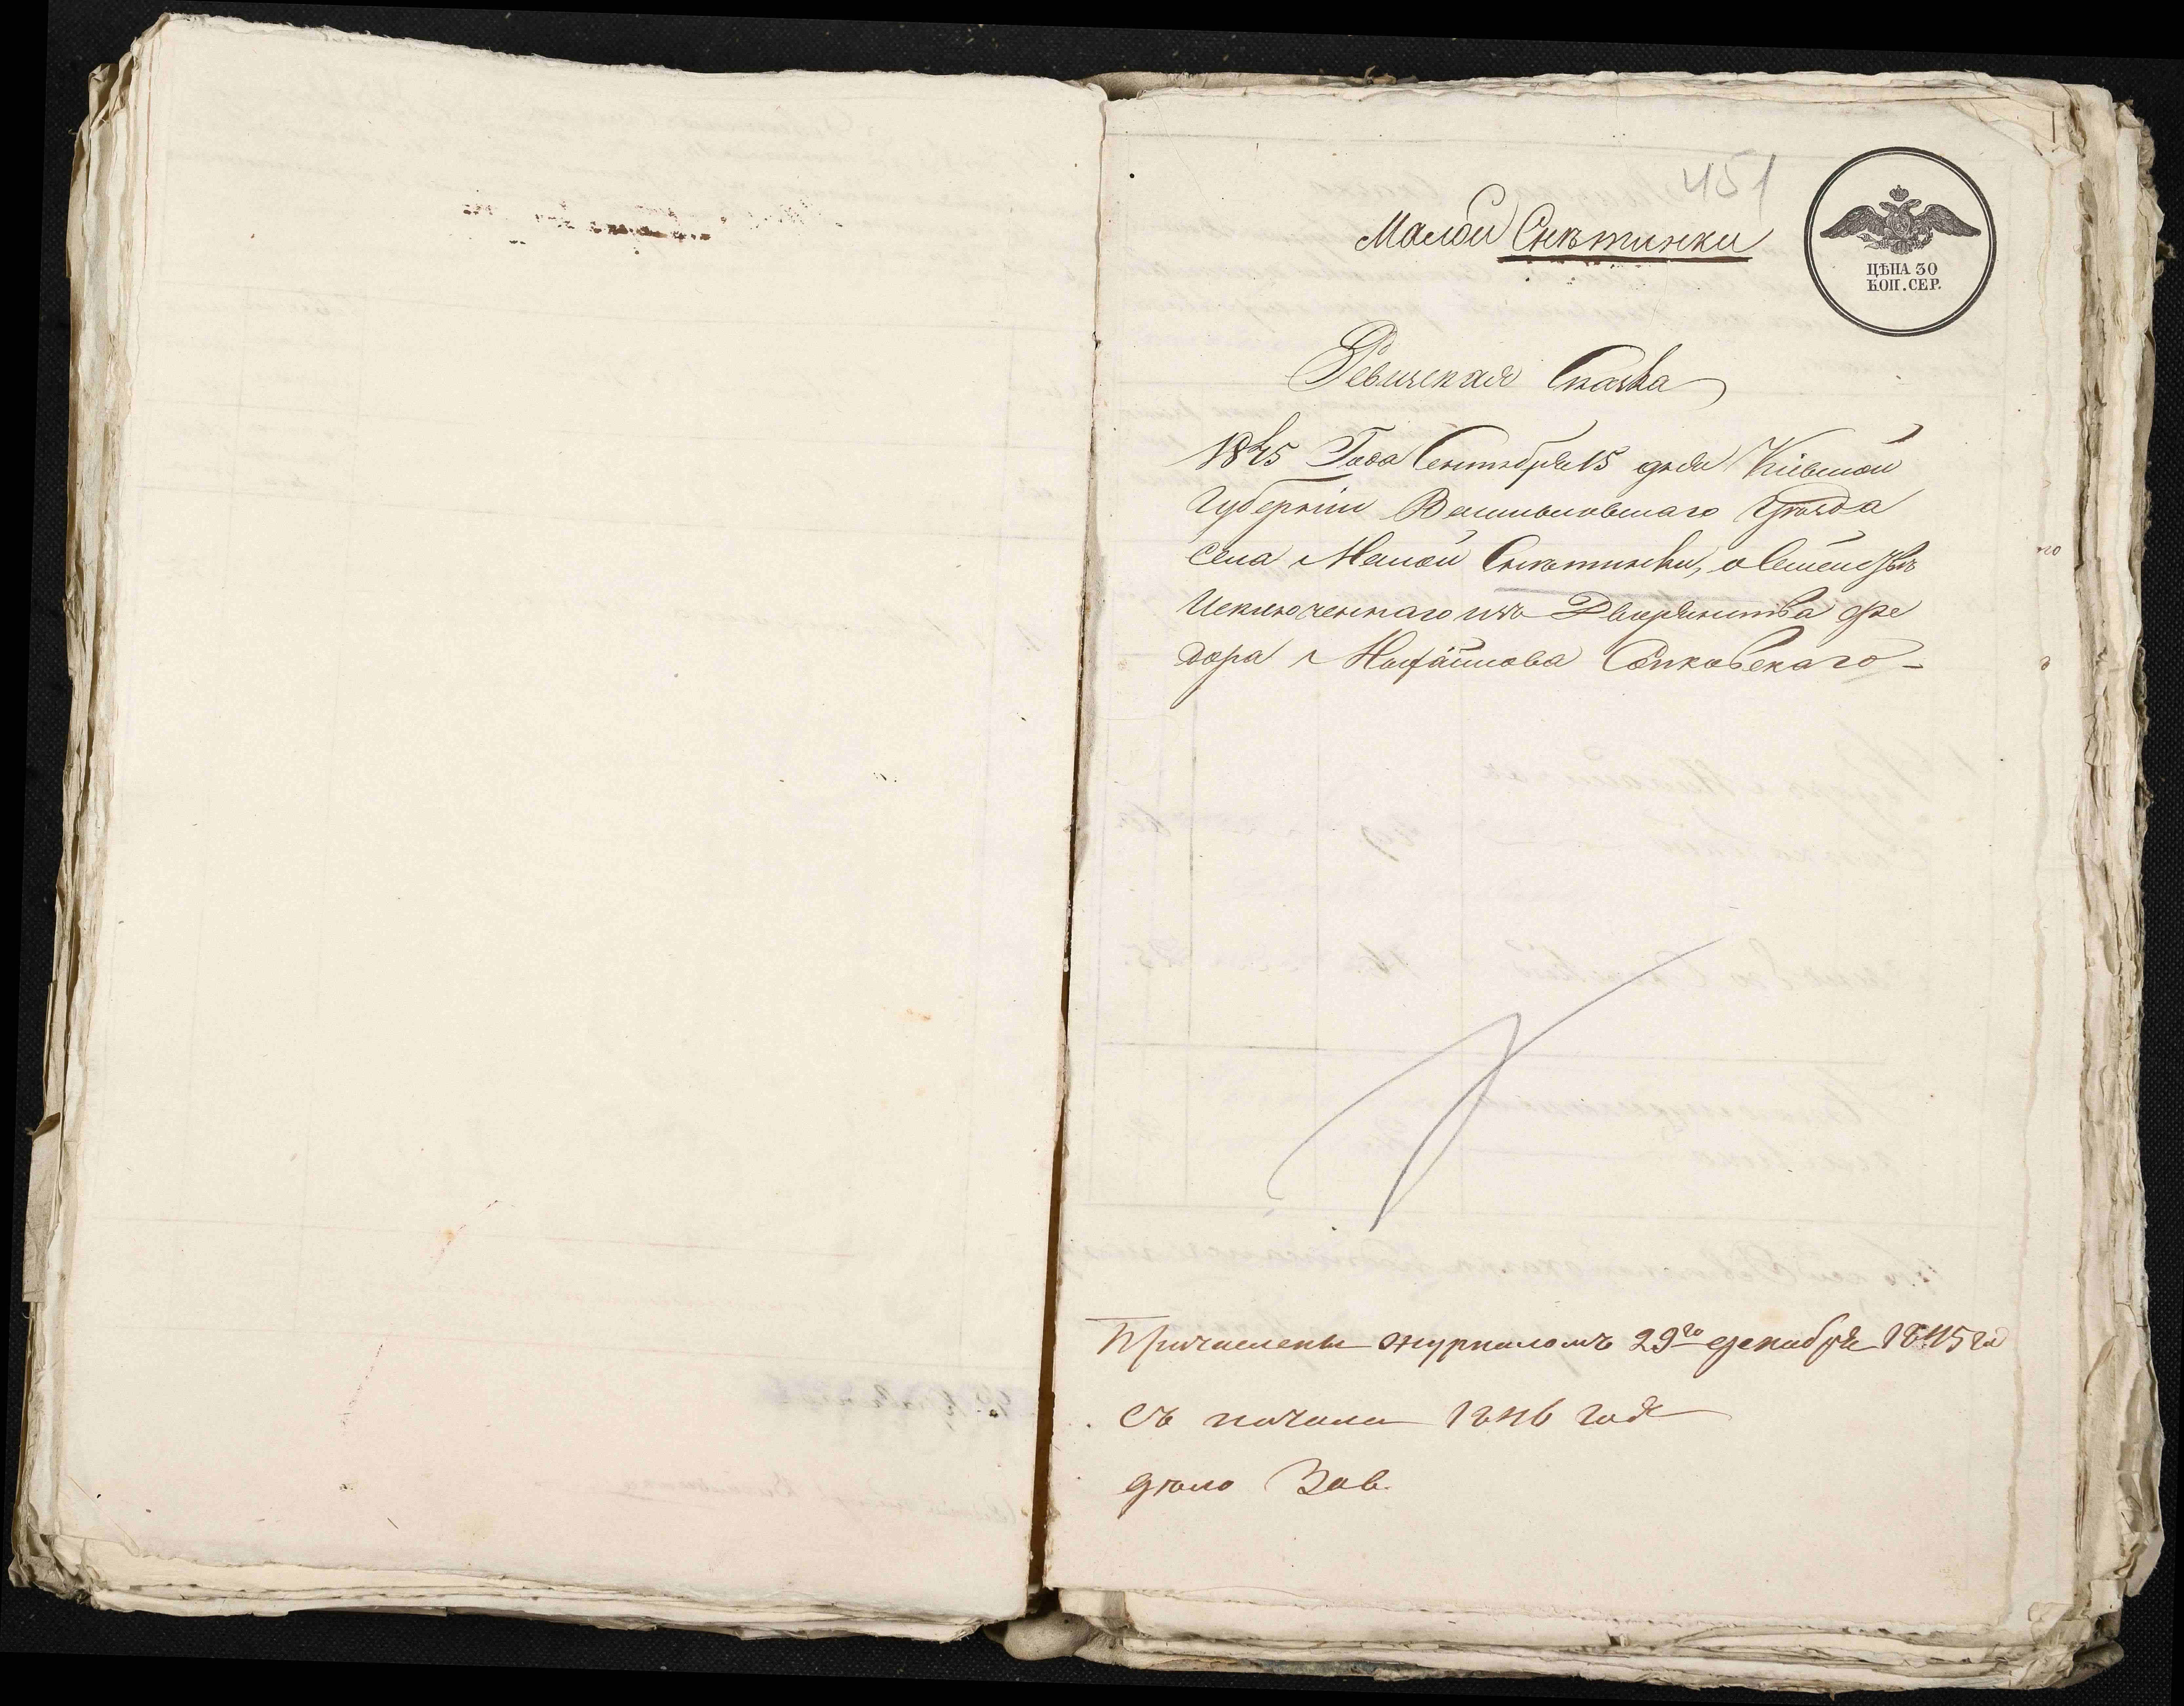 451
Малой Снѣтинки
ЦѢНА 30
КОП. СЕР.
Ревизская Сказка
1845 Года Сентября 15 дня Кіевской
Губерніи Васильковскаго Уѣзда
села Малой Снѣтинки, о Семействѣ
Исключеннаго изъ Дворянства Фе
дора Михайлова Сопковскаго -
Причислены журналомъ 29го декабря 1845 го
съ начала 1846 года
дѣло